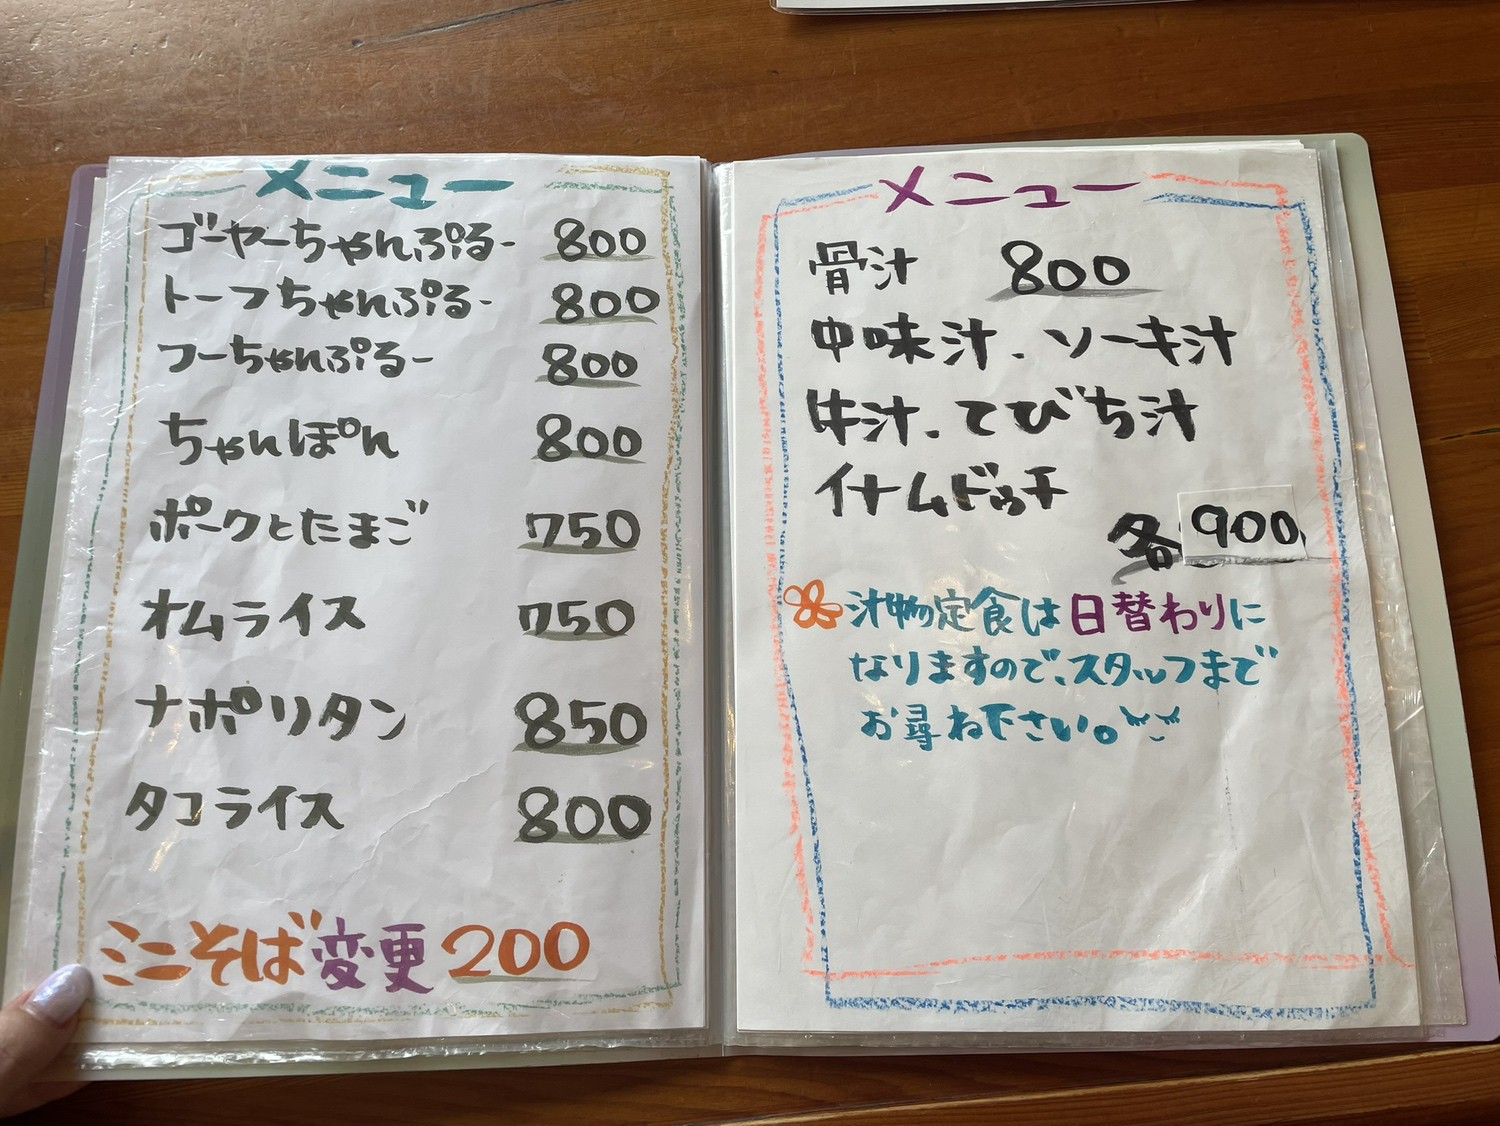 メニュー
ゴーヤーちゃんぷるー 800
トーフちゃんぷるー 800
フーちゃんぷるー 800
ちゃんぽん 800
ポークとたまご 750
オムライス 750
ナポリタン 850
タコライス 800
ミニそば変更 200
メニュー
骨汁 800
中味汁、ソーキ汁
牛汁、てびち汁
イナムドゥチ
各 900
汁物定食は日替わりに
なりますので、スタッフまで
お尋ね下さい。